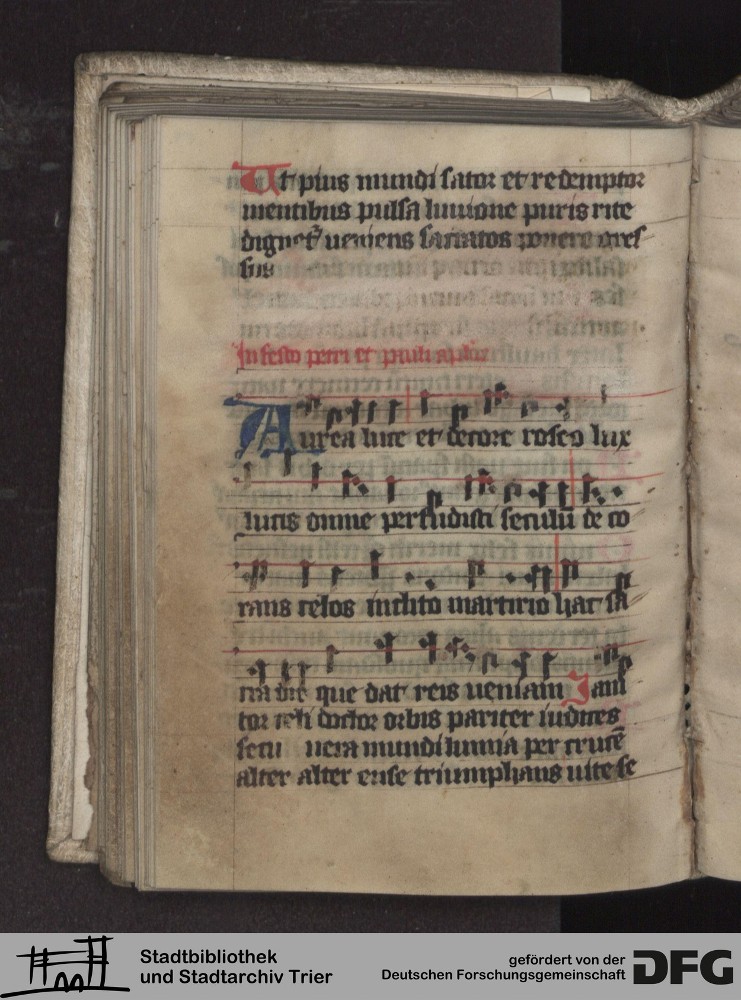 Ut pius mundi sator et redemptor
mentibus pulsa livione puris rite
dignet᷑ veniens sacratos ponere gres
sus
In festo petri et pauli aplor
Aurea luce et decore roseo lux
lucis omne perfudisti seculū de co
rans celos inclito martirio hac sa
cra die que dat reis veniam Iani
tor celi doctor orbis pariter iudices
secli vera mundi lumīa per crucē
alter alter ense triumphans vite se
Stadtbibliothek
und Stadtarchiv Trier
gefördert von der
Deutschen Forschungsgemeinschaft
DFG